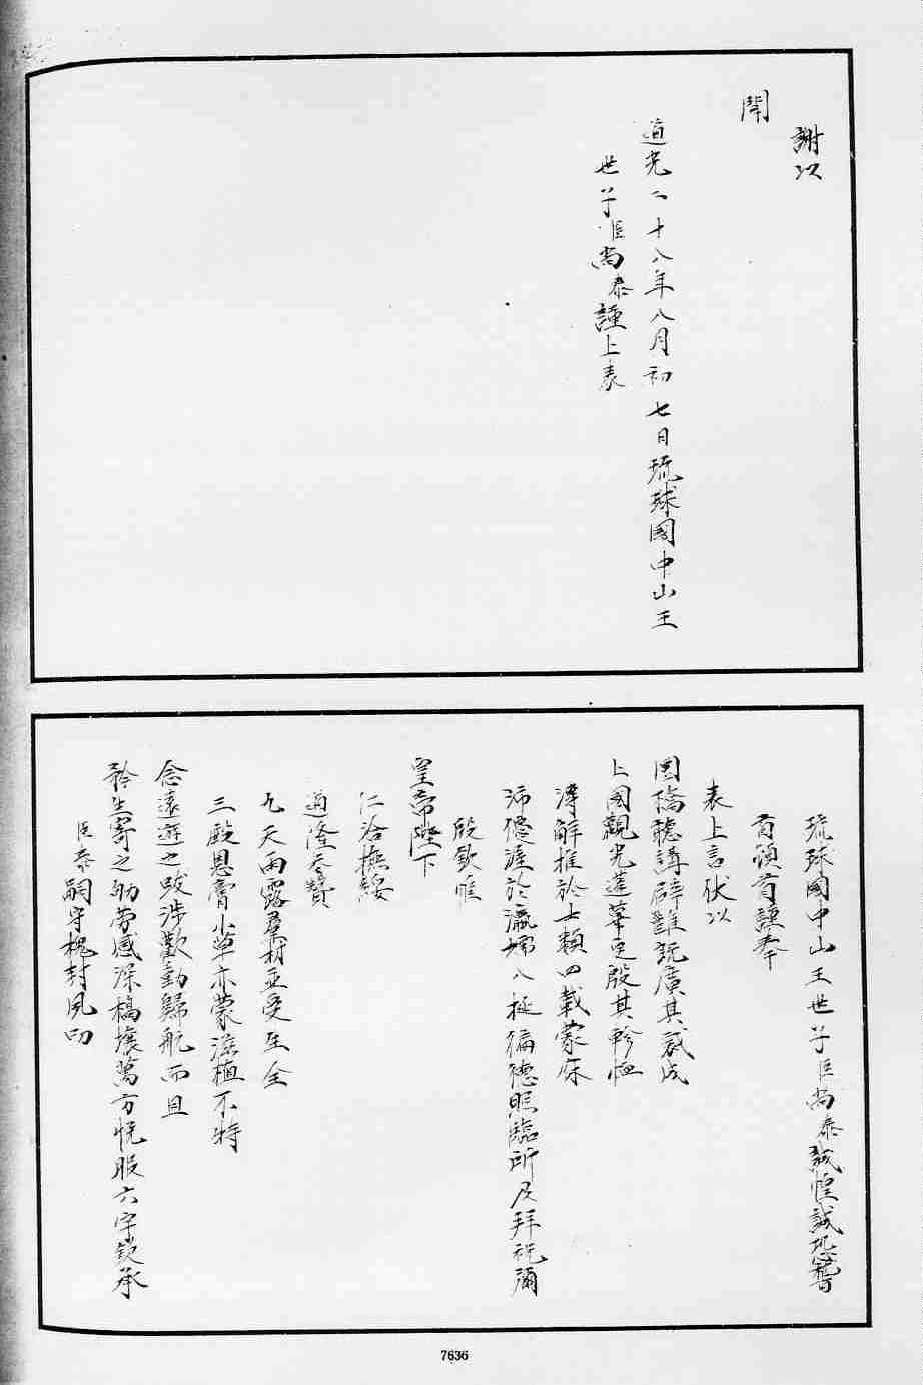 謝以
聞
道光二十八年八月初七日琉球國中山王
世子臣尚泰謹上表
琉球國中山王世子臣尚泰誠惶誠恐稽
首頓首謹奉
表上言伏以
圜橋聽講辟雝說廣其裁成
上國觀光蓬蓽定殷其軫恤
溥解推於士類四載蒙庥
沛優渥於瀛壖八埏徧德照臨所及拜祝彌
殷欽惟
皇帝陛下
仁洽撫綏
道隆參贊
九天雨露羣材並受生全
三殿恩膏小草亦蒙滋植不特
念遠遊之跋涉歡動歸航而且
矜生寄之劬勞感深槁壤萬方悅服六字欽承
臣泰嗣守槐封夙叨
7636